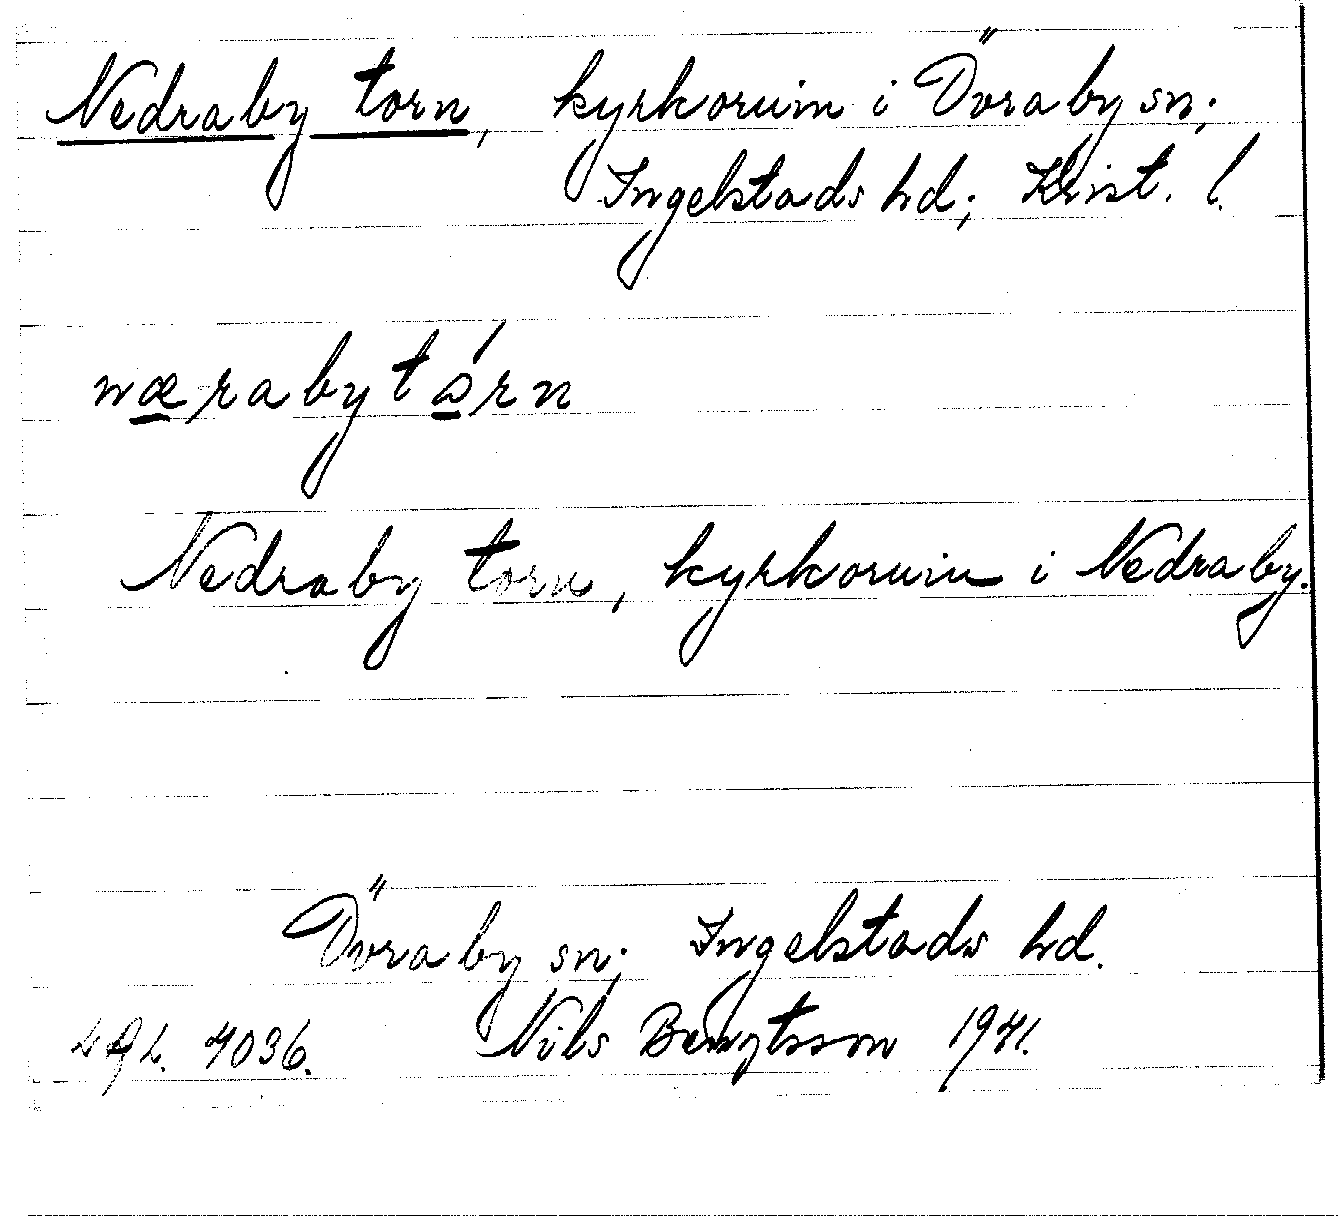 Nedraby torn, kyrkoruin i Övraby sn;
Ingelstads hd; Krist. l.
næraby tórn
Nedraby torn, kyrkoruin i Nedraby.
Övraby sn; Ingelstads hd.
LAL. 4036. Nils Bengtsson 1941.